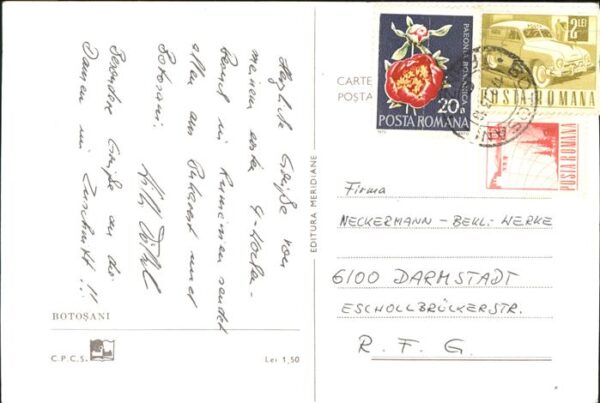 Herzliche Grüße von
meinem ersten 4-Wochen-
besuch in Rumänien sendet
allen aus Bukarest und
Botosani
Besondere Grüße an die
Damen im Zuschnitt!!
BOTOȘANI
C.P.C.S.
Lei 1,50
EDITURA MERIDIANE
CARTE
POȘTALĂ
PAEONIA ROMANICA
20 B
POSTA ROMANA
1972
2 LEI
POSTA ROMANA
POSTA ROMANA
Firma
NECKERMANN - BEKL. - WERKE
6100 DARMSTADT
ESCHOLLBRÜCKERSTR.
R. F. G.